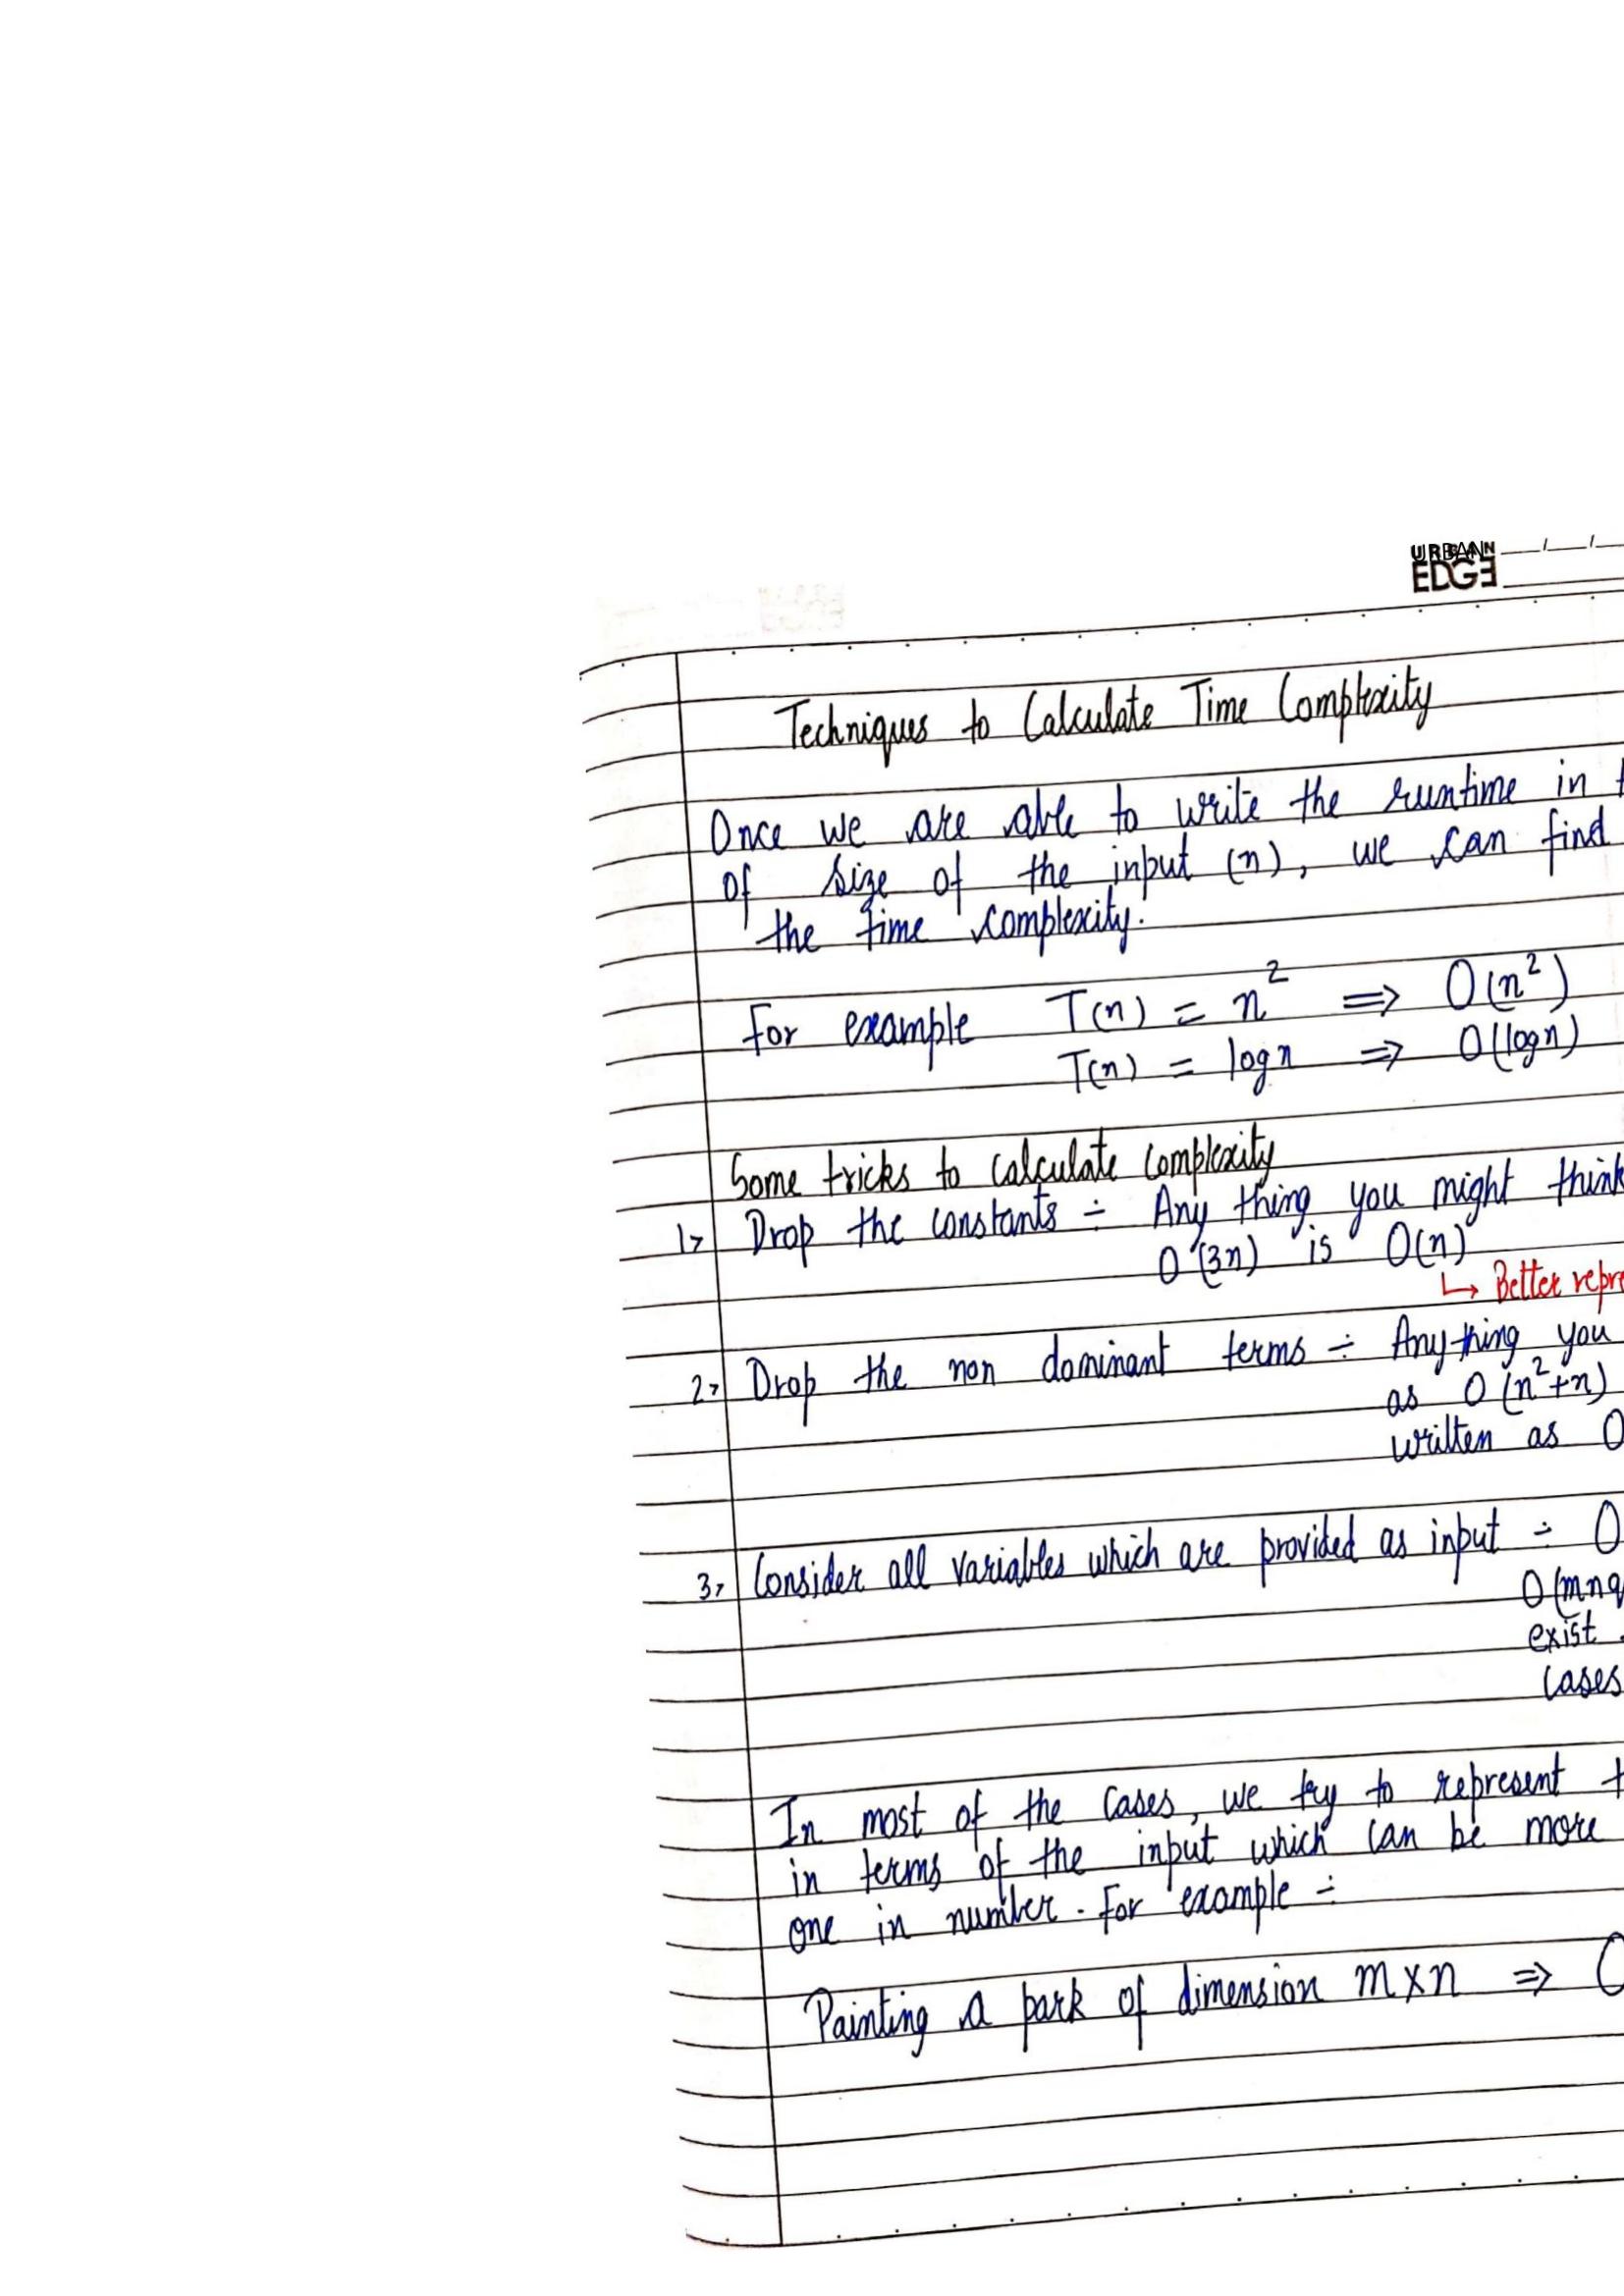 URBAN
EDGE
Techniques to Calculate Time Complexity
Once we are able to write the runtime in
of size of the input (n), we can find
the time complexity.
For example T(n) = n² ⇒ O(n²)
T(n) = log n ⇒ O(log n)
Some tricks to calculate complexity
1> Drop the constants ÷ Any thing you might think
O(3n) is O(n)
↳ Better repre
2> Drop the non dominant terms ÷ Anything you
as O(n²+n)
written as O
3> Consider all variables which are provided as input ÷ O
O(mnq
exist
cases
In most of the cases, we try to represent t
in terms of the input which can be more
one in number. For example ÷
Painting a park of dimension m×n ⇒ O